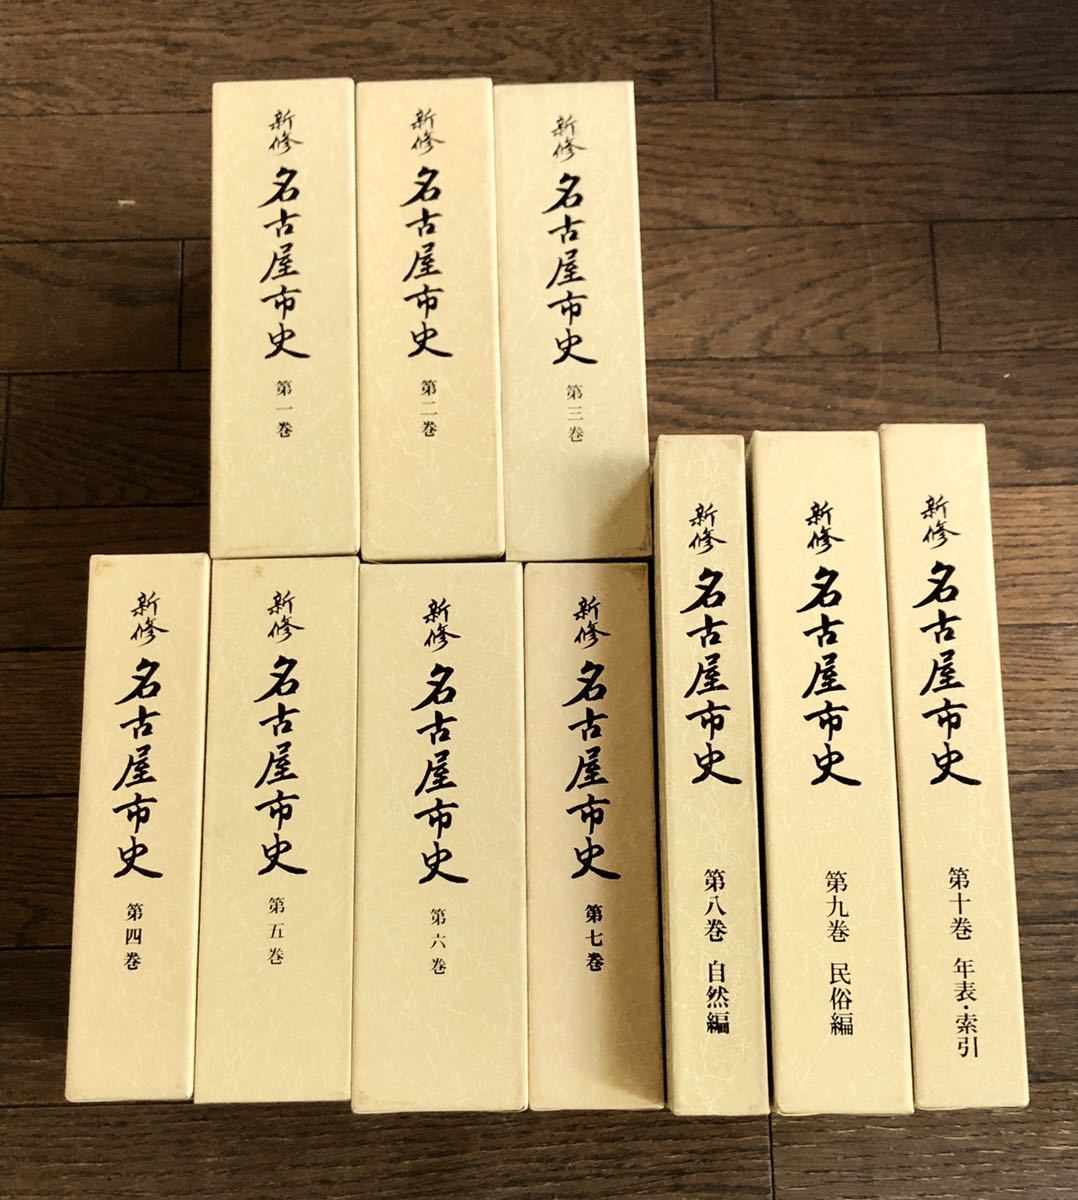 新修 名古屋市史 第一巻
新修 名古屋市史 第二巻
新修 名古屋市史 第三巻
新修 名古屋市史 第四巻
新修 名古屋市史 第五巻
新修 名古屋市史 第六巻
新修 名古屋市史 第七巻
新修 名古屋市史 第八巻 自然編
新修 名古屋市史 第九巻 民俗編
新修 名古屋市史 第十巻 年表・索引